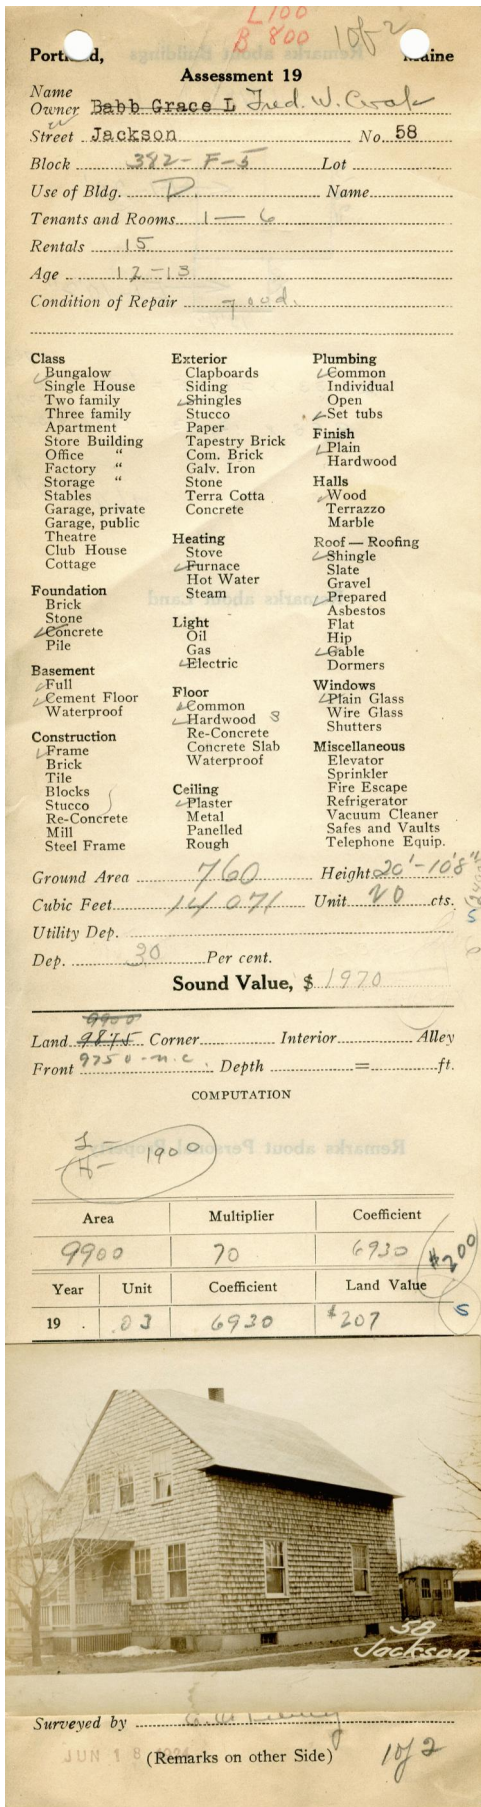 L 100
B 800
1 of 2
Portland, Maine
Assessment 19
Name
Owner Babb Grace L Fred. W.
Street Jackson No. 58
Block 392-F-5 Lot
Use of Bldg. D. Name
Tenants and Rooms 1 — 6
Rentals 15
Age 12-13
Condition of Repair good.
Class
Bungalow
Single House
Two family
Three family
Apartment
Store Building
Office "
Factory "
Storage "
Stables
Garage, private
Garage, public
Theatre
Club House
Cottage
Foundation
Brick
Stone
Concrete
Pile
Basement
Full
Cement Floor
Waterproof
Construction
Frame
Brick
Tile
Blocks
Stucco
Re-Concrete
Mill
Steel Frame
Exterior
Clapboards
Siding
Shingles
Stucco
Paper
Tapestry Brick
Com. Brick
Galv. Iron
Stone
Terra Cotta
Concrete
Heating
Stove
Furnace
Hot Water
Steam
Light
Oil
Gas
Electric
Floor
Common
Hardwood 3
Re-Concrete
Concrete Slab
Waterproof
Ceiling
Plaster
Metal
Panelled
Rough
Plumbing
Common
Individual
Open
Set tubs
Finish
Plain
Hardwood
Halls
Wood
Terrazzo
Marble
Roof — Roofing
Shingle
Slate
Gravel
Prepared
Asbestos
Flat
Hip
Gable
Dormers
Windows
Plain Glass
Wire Glass
Shutters
Miscellaneous
Elevator
Sprinkler
Fire Escape
Refrigerator
Vacuum Cleaner
Safes and Vaults
Telephone Equip.
Ground Area 760 Height 20'-10'8"
Cubic Feet 14 071 Unit 20 cts.
Utility Dep.
Dep. 30 Per cent.
Sound Value, $ 1970
9900
Land 9875 Corner Interior Alley
Front 9750-n.c. Depth = ft.
COMPUTATION
1900
Area Multiplier Coefficient
9900 70 6930
$200
Year Unit Coefficient Land Value
19 . .03 6930 $207
S
58
Jackson
Surveyed by
JUN 18
(Remarks on other Side) 1 of 2